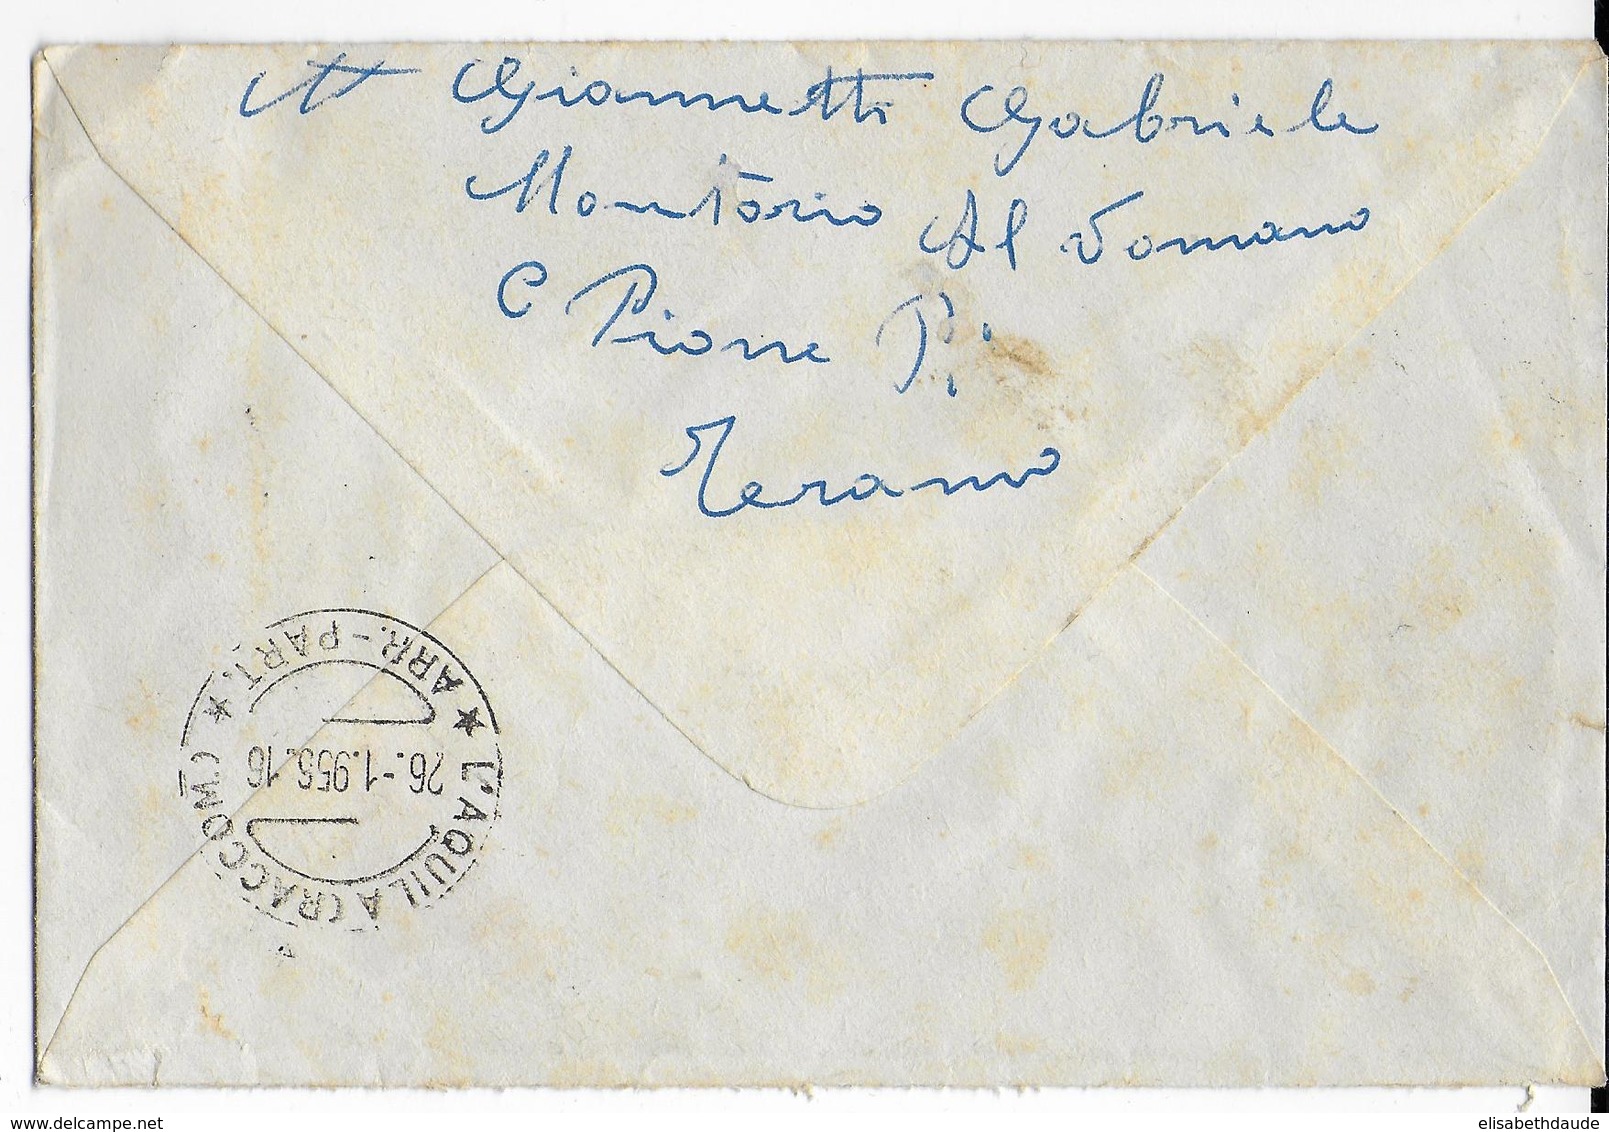 Giannetti Gabriele
Montorio Al Vomano
C Pione P.
Teramo
★ L'AQUILA (RACCOM.) ★ ARR.-PART.
26.-1.956.16
www.delcampe.net
elisabethdaude